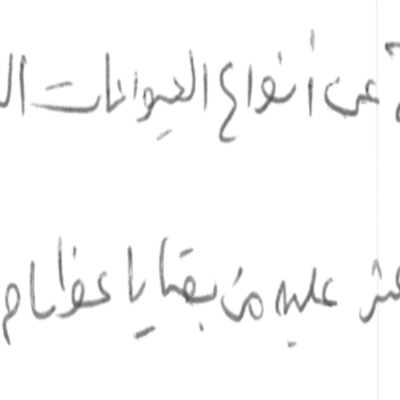 عن أنواع الحيوانات
عثر عليه من بقايا عظام